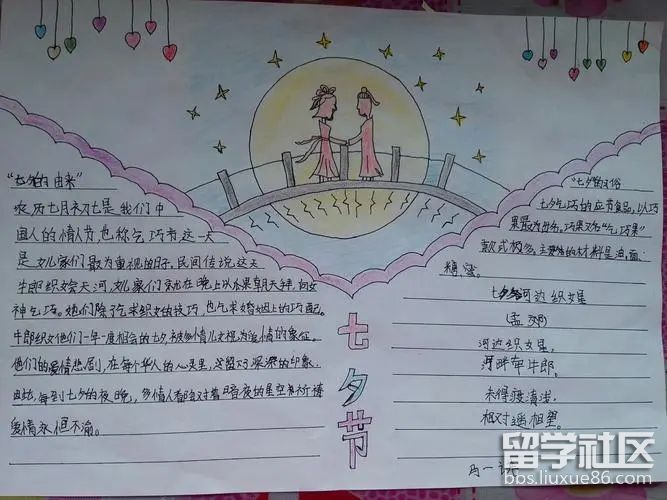 "七夕的由来"
农历七月初七是我们中
国人的情人节也称乞巧节这一天
是女儿家们最为重视的日子,民间传说这天
牛郎织女会天河女儿家们就在晚上以水果朝天拜,向女
神乞巧。她们除了乞求织女的技巧,也乞求婚姻上的巧配。
牛郎织女他们一年一度相会的七夕,被多情儿女视为爱情的象征。
他们的爱情悲剧,在每个华人的心里,这留下了深深的印象
由此,每到七夕的夜晚,多情人都会对着暗夜的星空来祈祷
爱情永恒不渝。
七夕节
七夕乞巧的应节食品,以巧
果最为出名,巧果又名"乞巧果"
款式极多,主要的材料是油,面,
糖,蜜。
河边织女星
(孟郊)
河边织女星,
河畔牵牛郎。
未得渡清浅,
相对遥相望。
留学社区
bbs.liuxue86.com